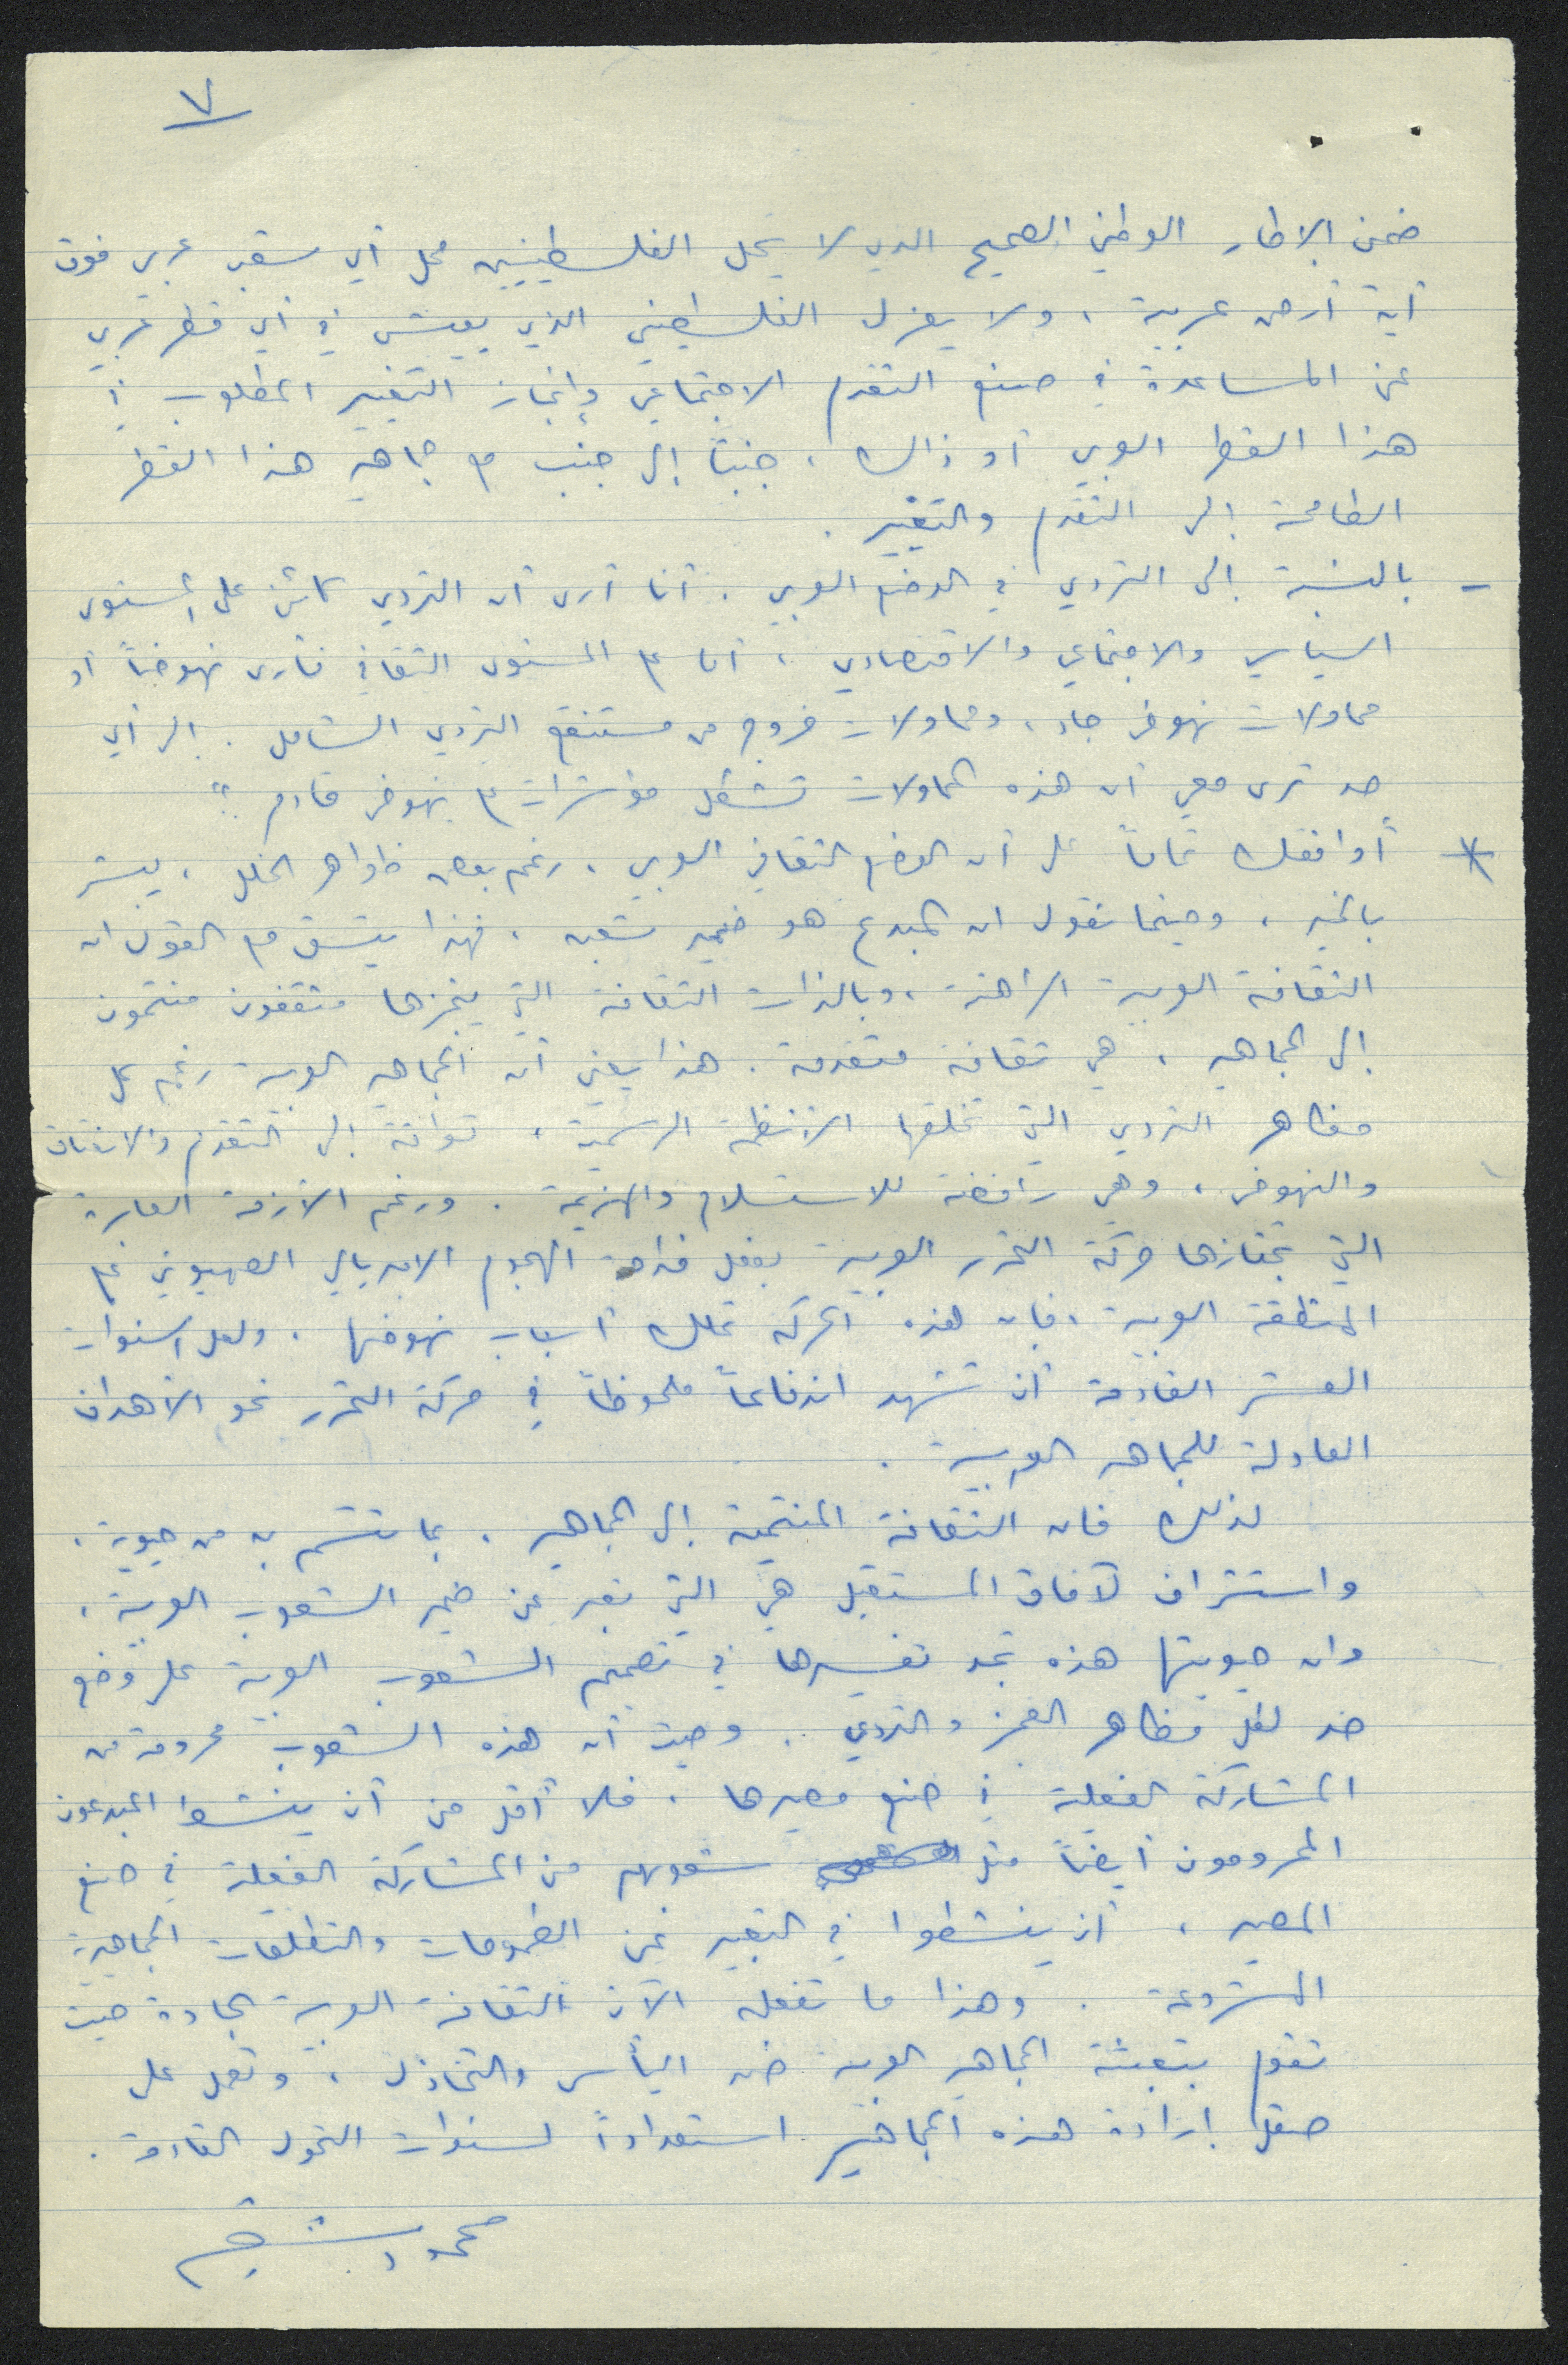 ٧
ضمن الاطار الوطني الصحيح الذي لا يحل الفلسطينيين محل أي شعب عربي فوق
أية أرض عربية، ولا يعزل الفلسطيني الذي يعيش في أي قطر عربي
عن المساعدة في صنع التقدم الاجتماعي وإنجاز التغيير المطلوب في
هذا القطر العربي أو ذاك، جنباً إلى جنب مع جماهير هذا القطر
الطامحة إلى التقدم والتغيير.
- بالنسبة إلى التردي في الوضع العربي. أنا أرى أن التردي كائن على المستوى
السياسي والاجتماعي والاقتصادي، أما على المستوى الثقافي فأرى نهوضاً أو
محاولات نهوض جاد، ومحاولات خروج من مستنقع التردي الشامل. إلى أي
حد ترى معي أن هذه المحاولات تشكل مؤشرات على نهوض قادم؟
* أوافقك تماماً على أن الوضع الثقافي العربي، رغم بعض ظواهر الخلل، يبشر
بالخير، وحينما نقول ان المبدع هو ضمير شعبه، فهذا يتسق مع القول ان
الثقافة العربية الراهنة، وبالذات الثقافة التي ينجزها مثقفون منتمون
إلى الجماهير، هي ثقافة متقدمة. هذا يعني أن الجماهير العربية رغم كل
مظاهر التردي التي تخلقها الأنظمة الرسمية، تواقة إلى التقدم والانعتاق
والنهوض، وهي رافضة للاستسلام والهزيمة. ورغم الأزمة العابرة
التي تجتازها حركة التحرر العربية بفعل ضراوة الهجوم الامبريالي الصهيوني على
المنطقة العربية، فان هذه الحركة تملك أسباب نهوضها. ولعل السنوات
العشر القادمة أن تشهد اندفاعاً ملحوظاً في حركة التحرر نحو الأهداف
العادلة للجماهير العربية.
لذلك فان الثقافة المنتمية إلى الجماهير، بما تتسم به من حيوية،
واستشراف لآفاق المستقبل هي التي تعبر عن ضمير الشعوب العربية،
وان حيويتها هذه تجد تفسيرها في تصميم الشعوب العربية على وضع
حد لكل مظاهر العجز والتردي. وحيث أن هذه الشعوب محرومة من
المشاركة الفعلية في صنع مصيرها، فلا أقل من أن ينشط المبدعون
المحرومون أيضاً مثل شعوبهم من المشاركة الفعلية في صنع
المصير، أن ينشطوا في التعبير عن الطموحات والتطلعات الجماهيرية
المشروعة. وهذا ما تفعله الآن الثقافة العربية الجادة حيث
تقوم بتعبئة الجماهير العربية ضد اليأس والتخاذل، وتعمل على
صقل إرادة هذه الجماهير استعداداً لسنوات التحول القادمة.
محمود شقير